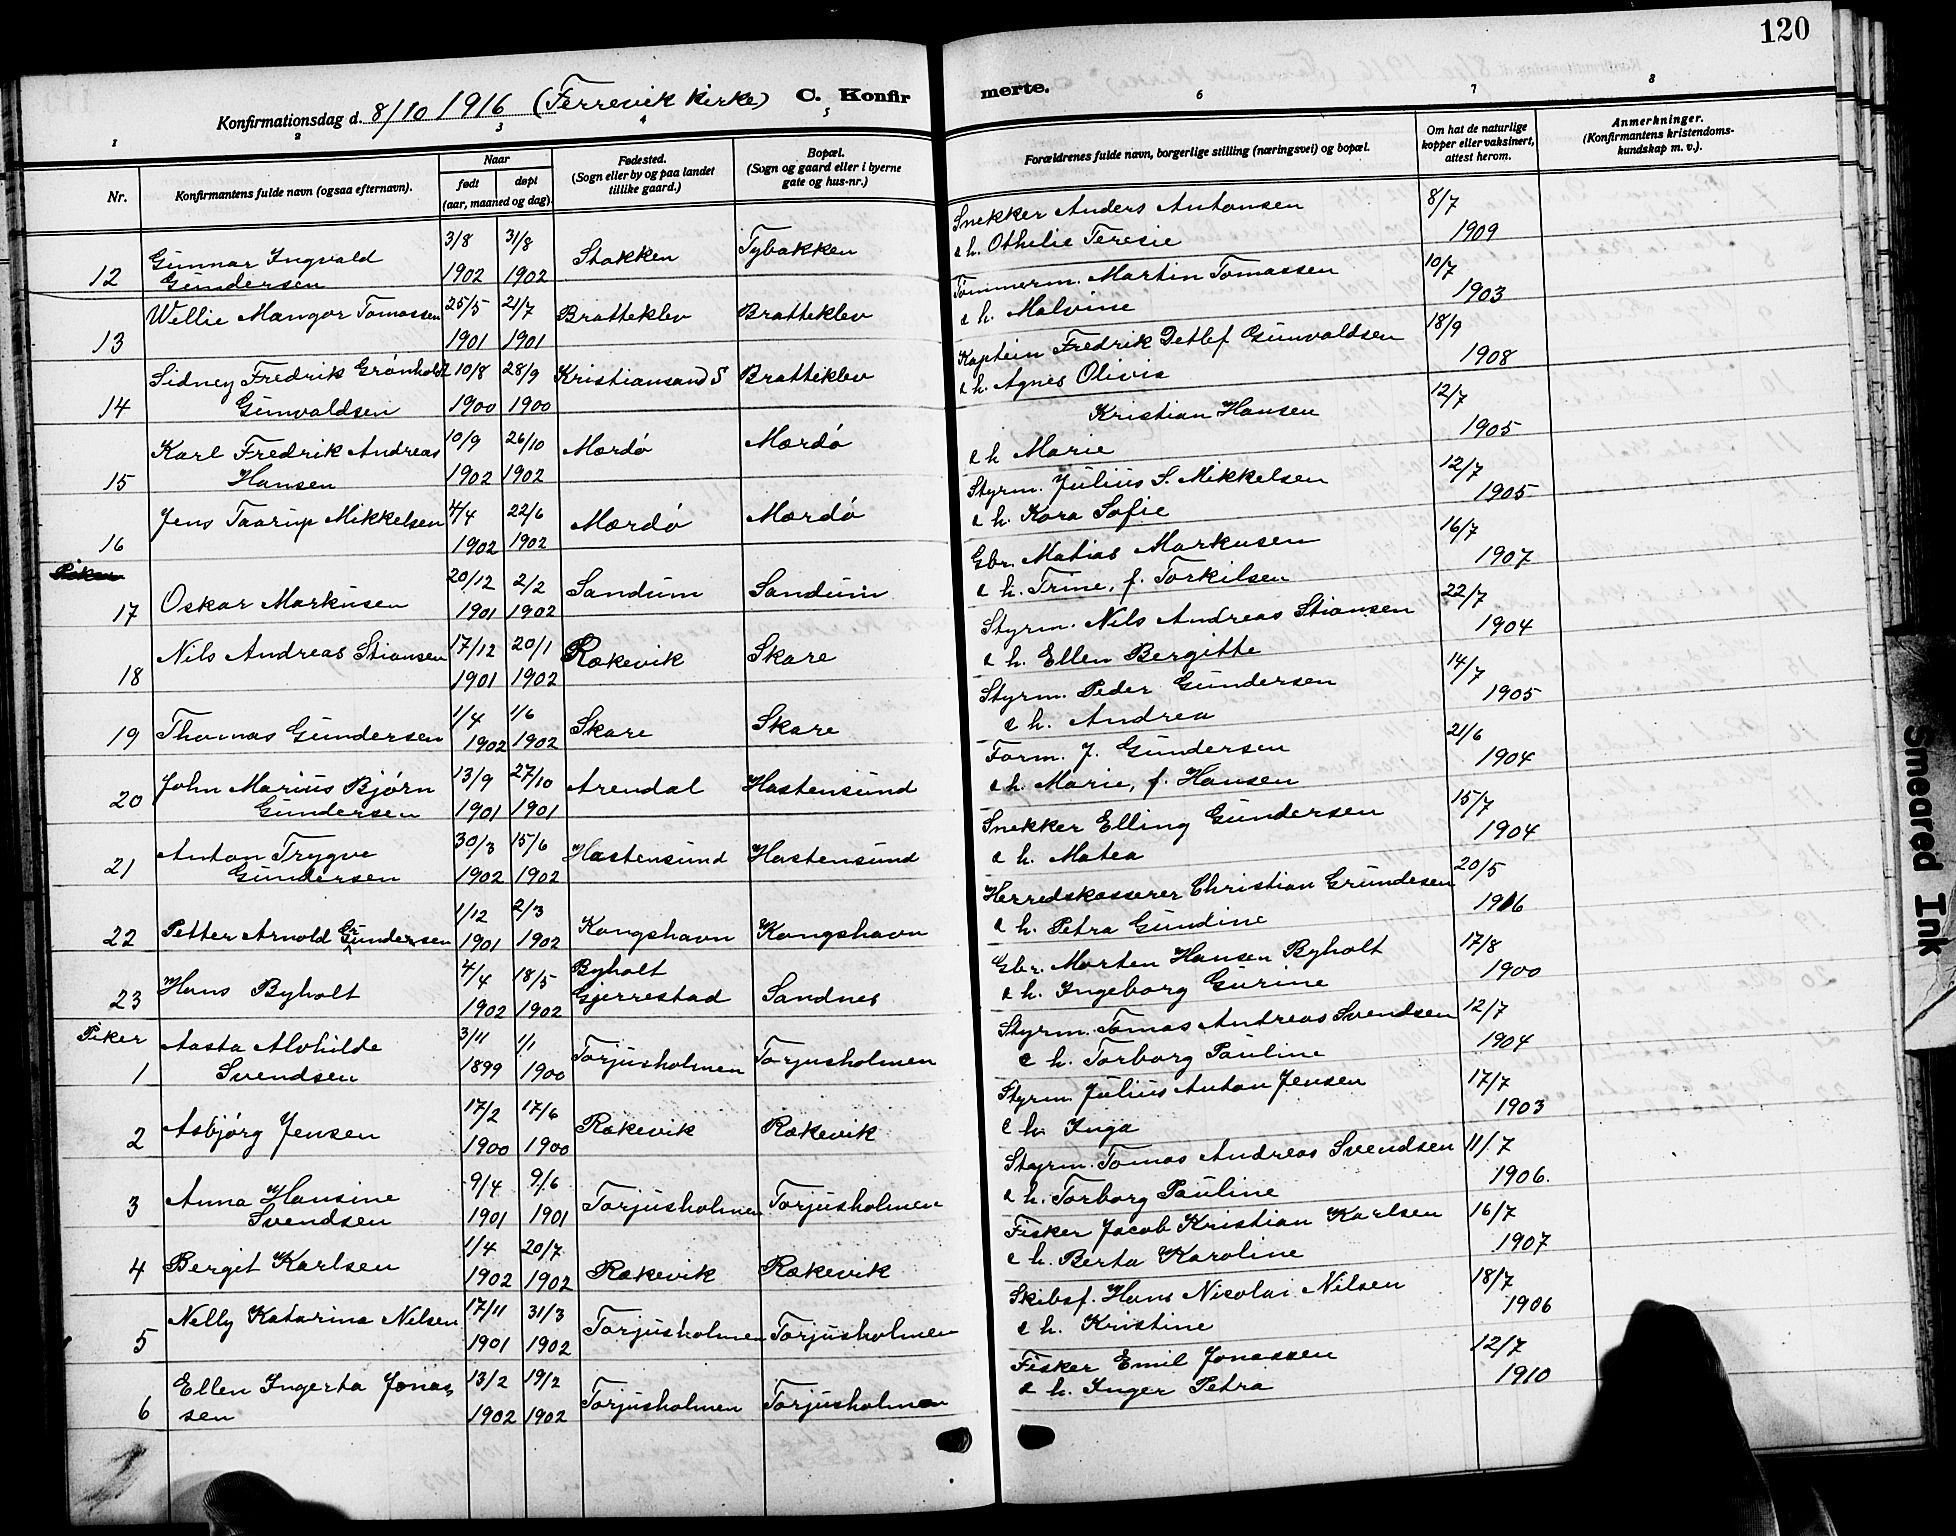 120
Konfirmationsdag d. 8/10 1916 (Færrevik kirke) C. Konfir
merte.
1 2 3 4 5 6 7 8
Nr.
Konfirmantens fulde navn (ogsaa efternavn).
Naar
født døpt
(aar, maaned og dag)
Fødested.
(Sogn eller by og paa landet
tillike gaard.)
Bopæl.
(Sogn og gaard eller i byerne
gate og hus-nr.)
Forældrenes fulde navn, borgerlige stilling (næringsvei) og bopæl.
Om hat de naturlige
kopper eller vaksinert,
attest herom.
Anmerkninger.
(Konfirmantens kristendoms-
kundskap m. v.).
12 Gunnar Ingvald Gundersen 3/8 1902 31/8 1902 Stokken Tybakken
Snekker Anders Antonsen
& h. Othelie Teresie 8/7 1909
13 Wellie Mangor Tomassen 25/5 1901 21/7 1901 Bratteklev Bratteklev
Tømmerm. Martin Tomassen
& h. Malvine 10/7 1903
14 Sidney Fredrik Grønholdt Gunvaldsen 10/8 1900 28/9 1900 Kristiansand S Bratteklev
Kaptein Fredrik Detlef Gunvaldsen
& h. Agnes Olivia 18/9 1908
15 Karl Fredrik Andreas Hansen 10/9 1902 26/10 1902 Mærdø Mærdø
Kristian Hansen
& h Marie 12/7 1905
16 Jens Taarup Mikkelsen 4/4 1902 22/6 1902 Mærdø Mærdø
Styrm. Julius S. Mikkelsen
& h. Kora Sofie 12/7 1905
17 Oskar Markusen 20/12 1901 2/2 1902 Sandum Sandum
Gbr. Matias Markusen
& h. Trine, f. Torkilsen 16/7 1907
18 Nils Andreas Stiansen 17/12 1901 20/1 1902 Rækevik Skare
Styrm. Nils Andreas Stiansen
& h. Ellen Bergitte 22/7 1904
19 Thomas Gundersen 1/4 1902 1/6 1902 Skare Skare
Styrm. Peder Gundersen
& h. Andrea 14/7 1905
20 John Marius Bjørn Gundersen 13/9 1901 27/10 1901 Arendal Hastensund
Form. J. Gundersen
& h. Marie, f. Hansen 21/6 1904
21 Anton Trygve Gundersen 30/3 1902 15/6 1902 Hastensund Hastensund
Snekker Elling Gundersen
& h. Matea 15/7 1904
22 Petter Arnold Gundersen 1/12 1901 2/3 1902 Kongshavn Kongshavn
Herredskasserer Christian Grundesen
& h. Petra Gundine 20/5 1916
23 Hans Byholt 4/4 1902 18/5 1902 Byholt Gjerrestad Sandnes
Gbr. Morten Hansen Byholt
& h. Ingeborg Gurine 17/8 1900
Piker
1 Aasta Alvhilde Svendsen 3/11 1899 1/1 1900 Torjusholmen Torjusholmen
Styrm. Tomas Andreas Svendsen
& h. Torborg Pauline 12/7 1904
2 Asbjørg Jensen 17/2 1900 17/6 1900 Rækevik Rækevik
Styrm Julius Anton Jensen
& h. Inga 17/7 1903
3 Anna Hansine Svendsen 9/4 1901 9/6 1901 Torjusholmen Torjusholmen
Styrm. Tomas Andreas Svendsen
& h. Torborg Pauline 11/7 1906.
4 Bergit Karlsen 1/4 1902 20/7 1902 Rækevik Rækevik
Fisker Jacob Kristian Karlsen
& h. Berta Karoline 16/7 1907
5 Nelly Katarina Nilsen 17/11 1901 31/3 1902 Torjusholmen Torjusholmen
Skibsf. Hans Nicolai Nilsen
& h. Kristine 18/7 1906
6 Ellen Ingerta Jonassen 13/2 1902 19/2 1902 Torjusholmen Torjusholmen
Fisker Emil Jonassen
& h. Inger Petra 12/7 1910
Smeared Ink